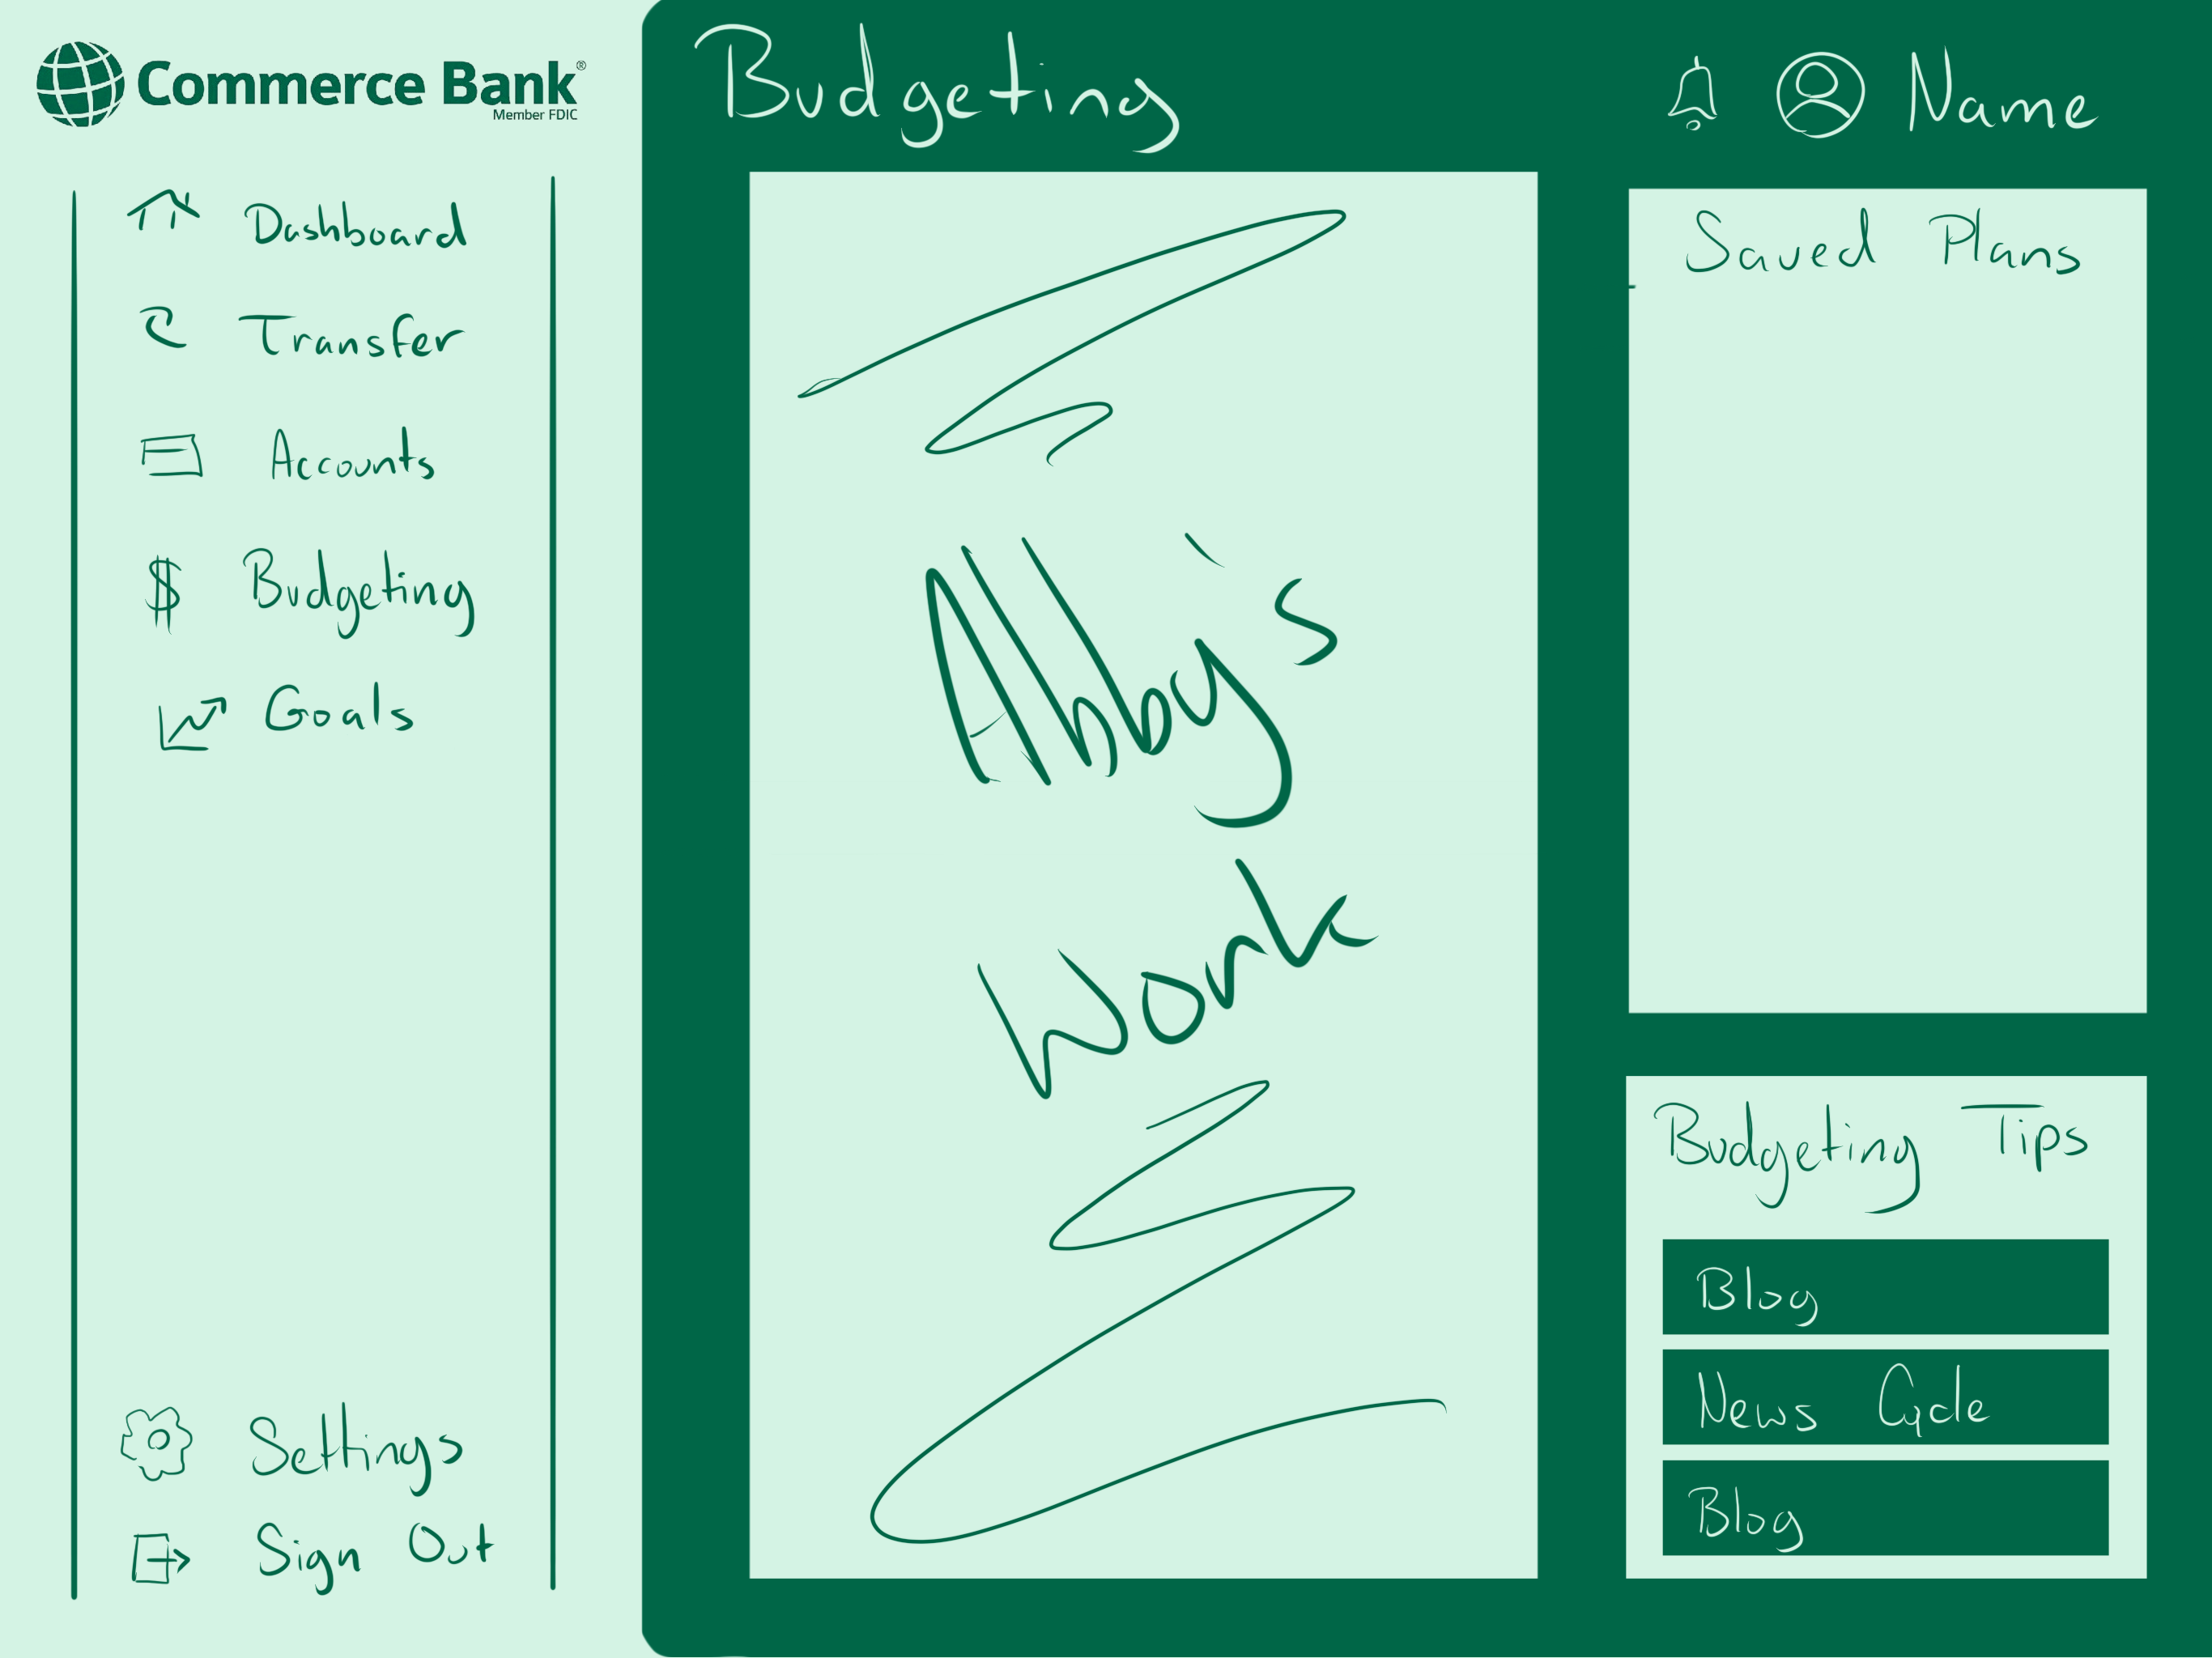 Commerce Bank®
Member FDIC
Dashboard
Transfer
Accounts
$ Budgeting
Goals
Settings
Sign Out
Budgeting
Name
Abby's
Work
Saved Plans
Budgeting Tips
Blog
News Cycle
Blog